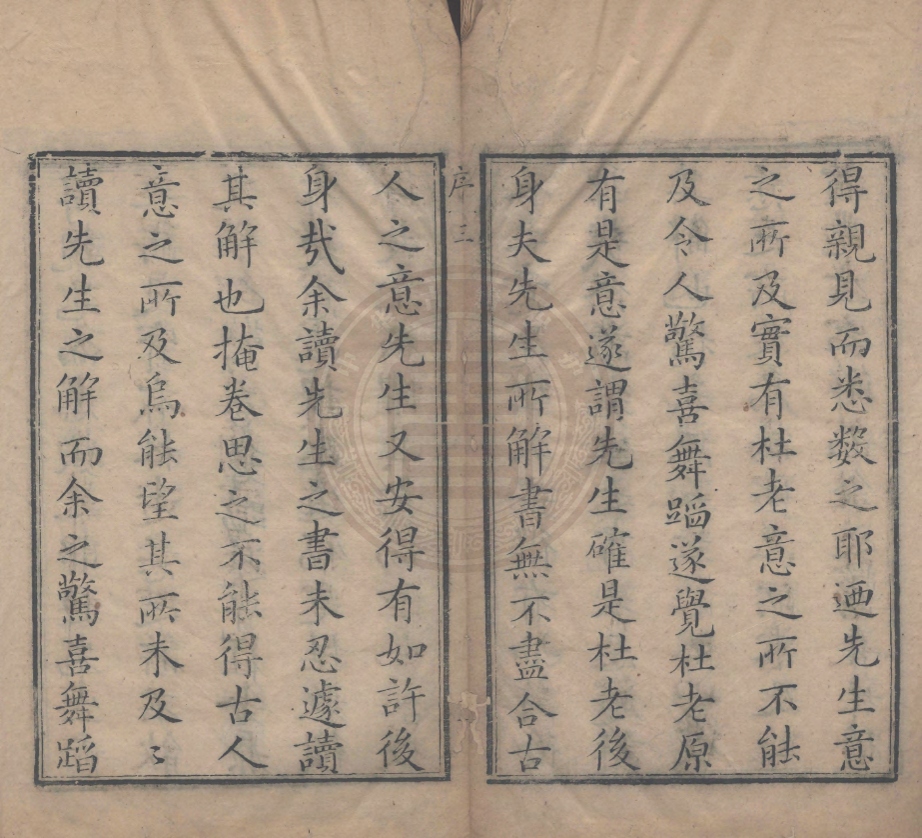 得親見而悉数之耶迺先生意
之所及實有杜老意之所不能
及令人驚喜舞蹈遂覺杜老原
有是意遂謂先生確是杜老後
身夫先生所解書無不盡合古
序 三
人之意先生又安得有如許後
身㦲余讀先生之書未忍遽讀
其解也掩卷思之不能得古人
意之所及烏能望其所未及〻
讀先生之解而余之驚喜舞蹈